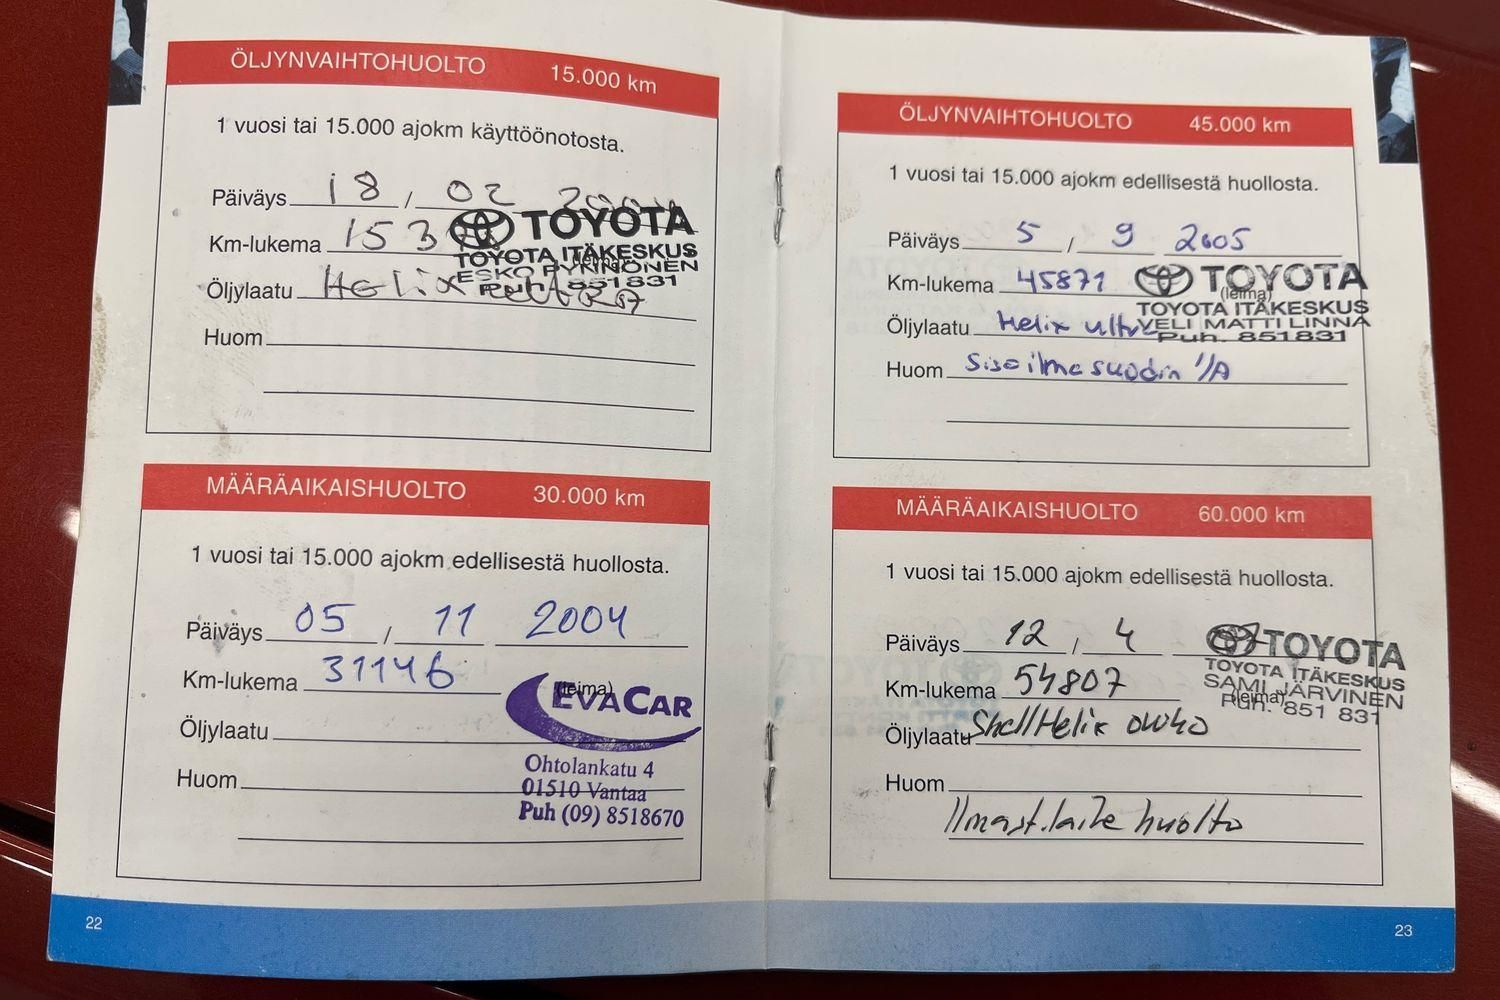 ÖLJYNVAIHTOHUOLTO 15.000 km
1 vuosi tai 15.000 ajokm käyttöönotosta.
Päiväys 18 / 02
Km-lukema 153
TOYOTA
TOYOTA ITÄKESKUS
ESKO PYNNÖNEN
Puh. 851831
Öljylaatu Helix ultra
Huom
MÄÄRÄAIKAISHUOLTO 30.000 km
1 vuosi tai 15.000 ajokm edellisestä huollosta.
Päiväys 05 / 11 2004
Km-lukema 31146
(leima)
EVACAR
Öljylaatu
Ohtolankatu 4
01510 Vantaa
Puh (09) 8518670
Huom
22
ÖLJYNVAIHTOHUOLTO 45.000 km
1 vuosi tai 15.000 ajokm edellisestä huollosta.
Päiväys 5 / 9 2005
Km-lukema 45871
TOYOTA
(leima)
TOYOTA ITÄKESKUS
VELI MATTI LINNA
Puh. 851831
Öljylaatu Helix ultra
Huom Sisäilmasuodin 1/A
MÄÄRÄAIKAISHUOLTO 60.000 km
1 vuosi tai 15.000 ajokm edellisestä huollosta.
Päiväys 12 / 4
TOYOTA
TOYOTA ITÄKESKUS
SAMI JÄRVINEN
(leima)
Puh. 851 831
Km-lukema 54807
Öljylaatu Shell Helix 0W40
Huom
Ilmast.laite huolto
23